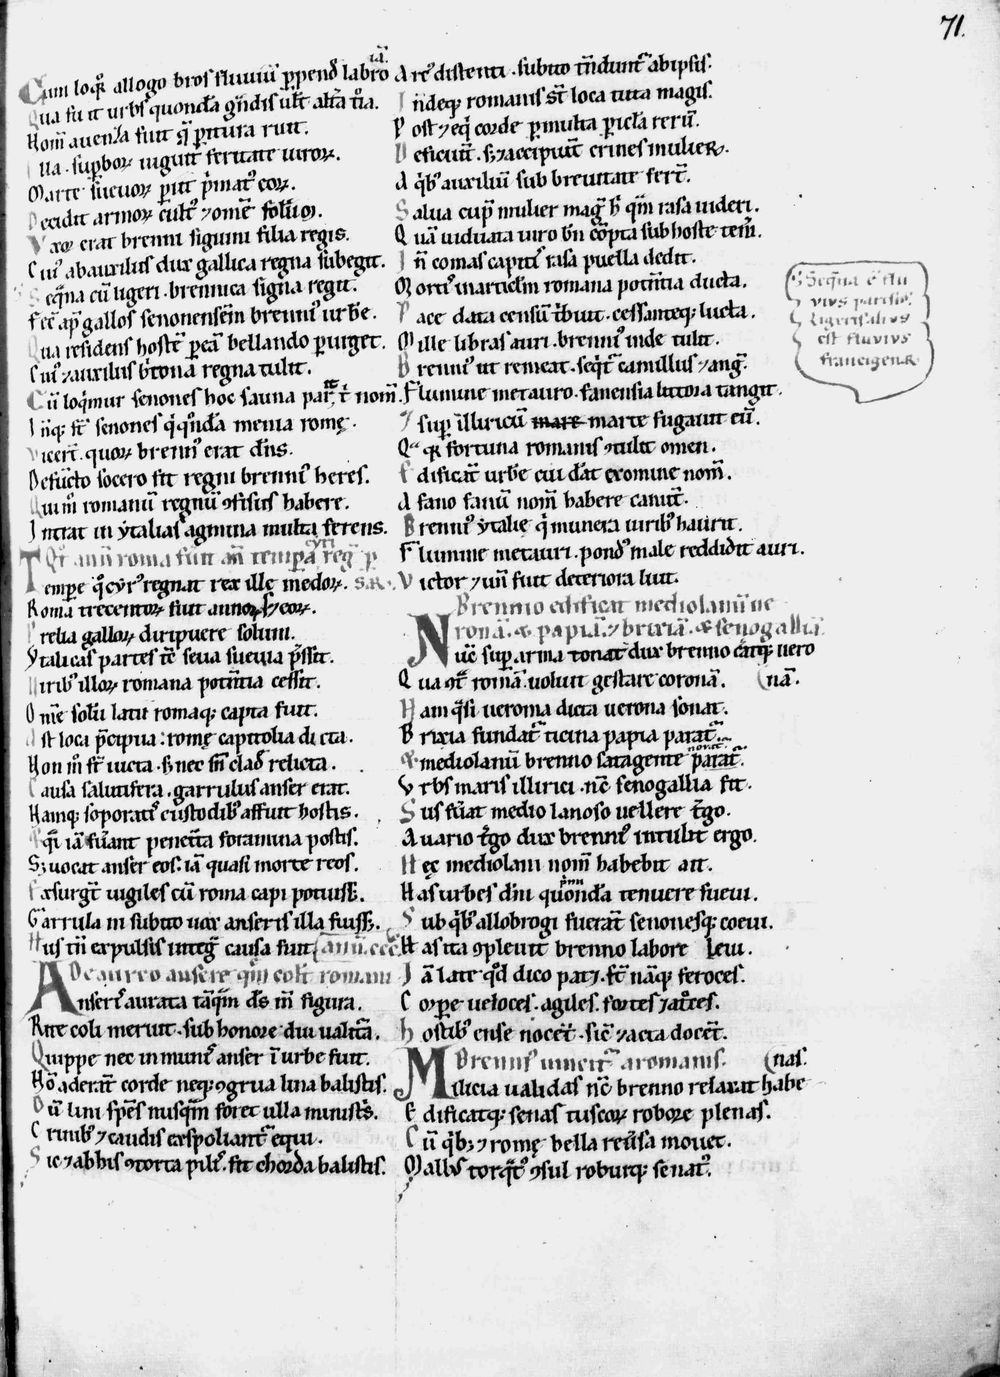 71.
Cum loqr̃ allogo bros fluuiũ ꝑpend labro
Qua fuit urbs quondã gñdis
Nom̃ auenta fuit q̃ ꝑitura ruit.
Illa suꝑboꝝ uiguit feritate uiroꝝ.
Marte sueuoꝝ ꝑiit p̃mat⁹ eoꝝ.
Decidit armoꝝ cult⁹ ⁊ om̃e soliũ.
Vxor erat brenni siguini filia regis.
Cui⁹ abauxiliis dux gallica regna subegit.
Seq̃na cũ ligeri. brennica signa regit.
Fec̃ ap̃ gallos senonensem̃ brenni⁹ urbẽ.
Qua residens hostẽ ꝑeã bellando ꝑurget.
Cui⁹ ⁊ auxiliis b̃tonã regna tulit.
Cũ loqimur senones hoc sauna par̃ nom̃.
Inq; fr̃ senones q̃ q̃ndã menia romę.
Vicerẽt. quoꝝ brenn⁹ erat dñs.
Defũcto socero fit regni brenni⁹ heres.
Qui m̃ romanũ regnũ ꝯfisus habere.
Intrat in ẏtalias agmina multa ferens.
Qt̃ anñ roma fuit añ temꝑa reg̃
Tempe q̃ cẏr⁹ regnat rex ille medoꝝ.
Roma trecentoꝝ fuit annoꝝ
Prelia galloꝝ diripuere solum.
Ẏtalicas partes tẽ seua sueuia p̃ssit.
Uirib⁹ illoꝝ romana potñtia cessit.
Om̃e solũ latii romaq; capta fuit.
Ast loca p̃cipua: romę capitolia dicta.
Non m̃ st̃ uicta. s; nec sñ clad̃ relicta.
Causa salutifera. garrulus anser erat.
Namq; soporatis custodib⁹ affuit hostis.
Qui iã fũant penetrã foramina postis.
S; uocat anser eos. iã quasi morte reos.
Exsurgt̃ uigiles cũ roma capi potuiss̃.
Garrula ni subito uox anseris illa fuiss;.
Hus tñ expulsis integ̃ causa fuit
De aureo ansere quẽ colt̃ romani
Anseris aurata tãq̃m ds m̃ figura.
Rite coli meruit. sub honore diu ualitã.
Quippe nec inmunis anser ĩ urbe fuit.
Nõ aderãt corde neq; ꝯgrua lina balistis.
Dũ lini sp̃es nusq̃m foret ulla ministris.
Crinib⁹ ⁊ caudis exspoliant̃ equi.
Sic ⁊ abhis ꝯtorta pilis. fit chorda balistis.
Arc⁹ distenti. subito tñdunt̃ abipsis.
Indeq; romanis st̃ loca tuta magis.
Post ⁊ eq̃ corde ꝑmulta ꝑicla rerũ.
Deficiũt. s; ⁊ accipiũt crines mulieꝝ.
A q̃b⁹ auxiliũ sub breuitate ferẽt.
Salua cupit mulier mag̃ h̃ q̃m rasa uideri.
Quã uiduata uiro bñ cõpta sub hoste tem̃.
Iñ comas capitis rasa puella dedit.
Mortis⁹ romana potñtia ducta.
Pace data censũ t̃buit. cessanteq; lucta.
Mille libras auri. brenni⁹ inde tulit.
Brenni⁹ ut remeat. seq̃t̃ camillus ⁊ ang̃.
Flumine metauro. fanensia littora tangit.
I suꝑ illiricũ mare marte fugauit eũ.
Qᵃ qꝝ fortuna romanis ꝯtulit omen.
Edificãt urbẽ cui dãt exomine nom̃.
A fano fanũ nom̃ habere canũt.
Brenni⁹ ẏtalię q̃ munera uirib⁹ haurit.
Flumine metauri. pond⁹ male reddidit auri.
Victor ⁊ uñ fuit deteriora luit.
Brennio edificat mediolanũ ue
ronã. & papiã. ⁊ brixiã. & senogalliã
Nũc suꝑ arma tonat dux brenno cãtq; uero
(nã.
Qua ꝯt̃ romã uoluit gestare coronã.
Nam q̃si ueroma dicta uerona sonat.
Brixia fundat̃ ticina papia parat̃.
& mediolanũ brenno satagente parat̃. nouat̃
Vrbs maris illirici. nc̃ senogallia fit.
Sus fũat medio lanoso uellere t̃go.
Auario t̃go dux brenni⁹ intulit ergo.
Hec mediolani nom̃ habebit ait.
Has urbes diu quondã tenuere sueui.
Sub q̃b⁹ allobrogi fuerãt senonesq; coeui.
Has ita ꝯpleuit brenno labore leui.
Iã late q̃d dico pat;. st̃ nãq; feroces.
Corꝑe ueloces. agiles. fortes ⁊ atroces.
Hostib⁹ ense nocẽt. sic̃ ⁊ acta docẽt.
Brenni⁹ uincit̃ a romanis.
(nas.
Milicia ualidas nc̃ brenno relaxat habe
Edificatq; senas tuscoꝝ robore plenas.
Cũ q̃b; ⁊ romę bella reũsa mouet.
Mallis torq̃t⁹ ꝯsul roburq; senat⁹.
Seq̃na ẽ flu
vivs parisio⁹.
Ligeris alivs
est flvvivs
francigenaꝝ